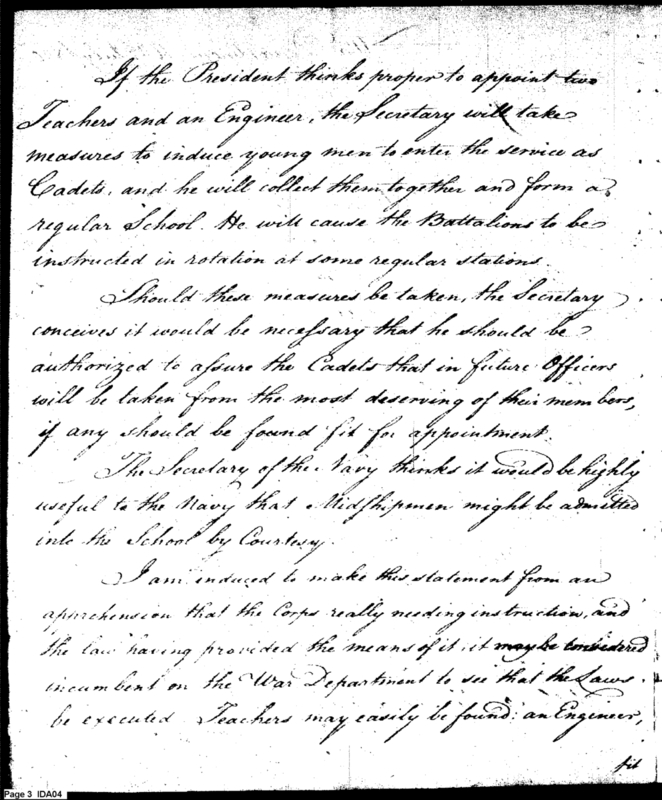 If the President thinks proper to appoint two
Teachers and an Engineer, the Secretary will take
measures to induce young men to enter the service as
Cadets, and he will collect them together and form a
regular School. He will cause the Battalions to be
instructed in rotation at some regular stations.
Should these measures be taken, the Secretary
conceives it would be necessary that he should be
authorized to assure the Cadets that in future Officers
will be taken from the most deserving of their members,
if any should be found fit for appointment.
The Secretary of the Navy thinks it would be highly
useful to the Navy that Midshipmen might be admitted
into the School by Courtesy.
I am induced to make this statement from an
apprehension that the Corps really needing instruction, and
the law having provided the means of it, it may be considered
incumbent on the War Department to see that the Laws
be executed. Teachers may easily be found: an Engineer,
fit
Page 3 IDA04